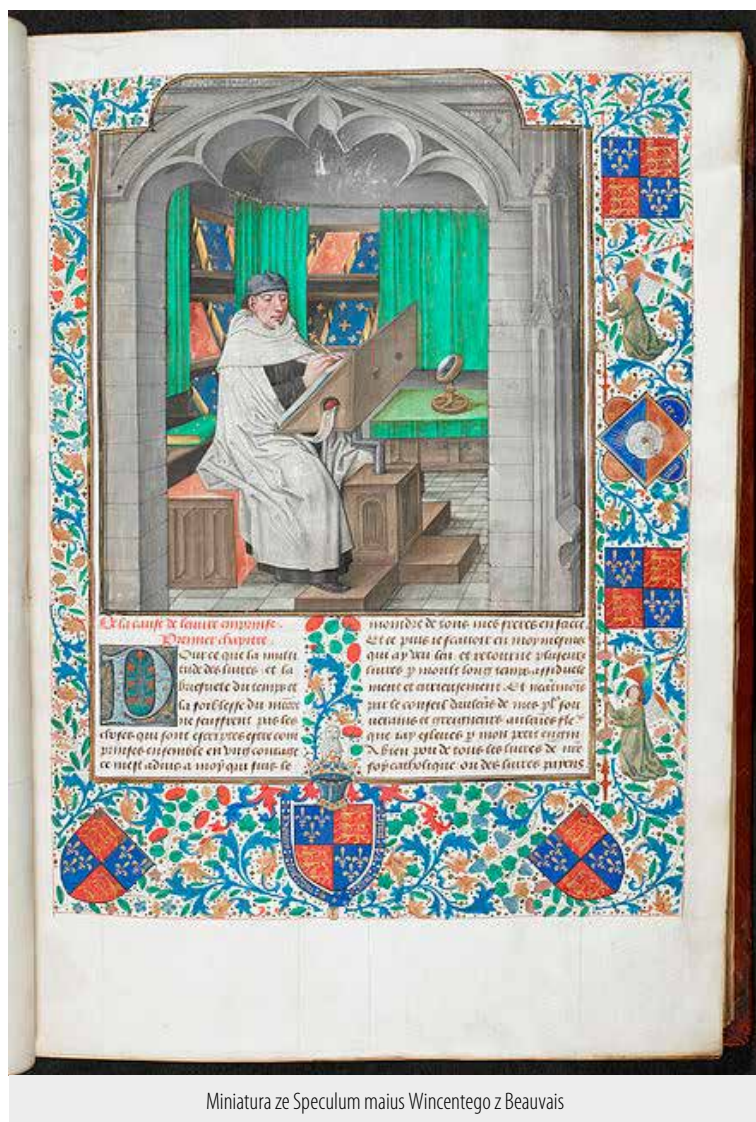 De la cause de leuure emprinse.
Premier chapitre.
Pour ce que la multi
tude des liures et la
briefuete du temps et
la foiblesse du
ne seuffrent pas les
choses qui sont escriptes estre com
prinses ensemble en vng courage
ce mest aduis a moy qui suis le
moindre de tous mes freres
Et ce puis ie scauoir en moymesmes
qui ay veu leu et retourne plusieurs
liures p moult long temps assiduele
ment et curieusement Et neantmois
par le conseil daulcuns de mes pl sou
uerains et greigneurs aulcunes
que iay esleues p mon petit engin
A bien pou de tous les liures de nre
foy catholique ou des liures paiens
Miniatura ze Speculum maius Wincentego z Beauvais